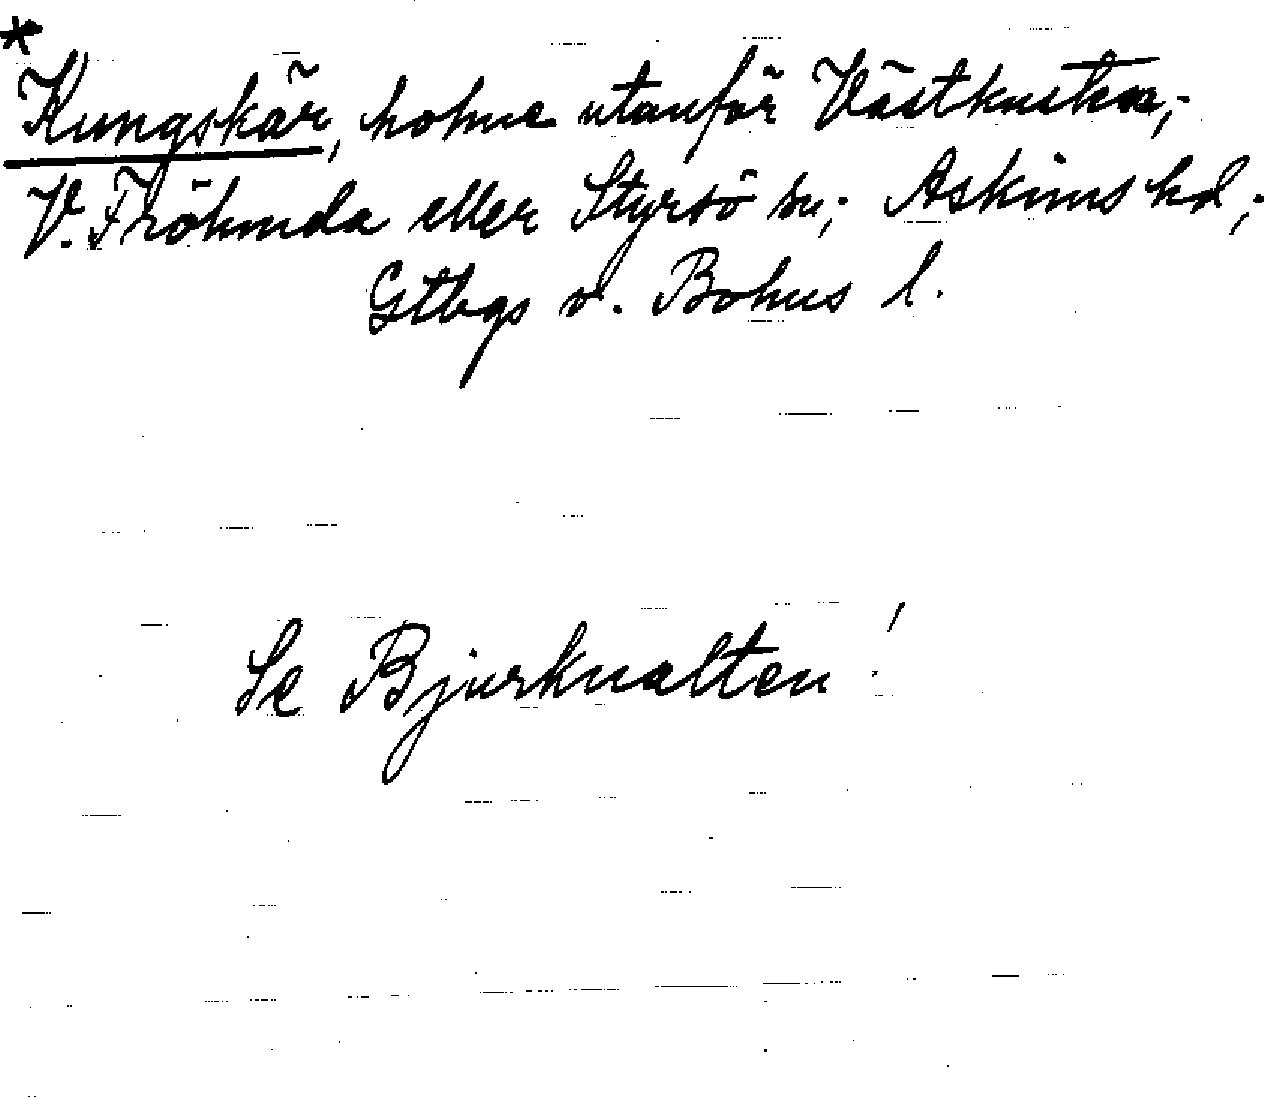 * Kungskär, holme utanför Västkusten,;
V. Frölunda eller Styrsö sn; Askims hd,;
Gtbgs o. Bohus l.
Se Bjurknalten!